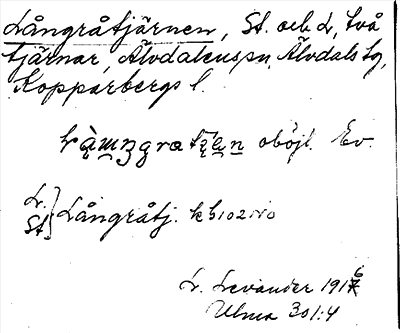 Långråtjärnen, St. och L, två
tjärnar, Älvdalens sn, Älvdals tg,
Kopparbergs l.
oböjl. Ev.
L.
St. } Långråtj. kb 102 no
L. Levander 1916
Ulma 301:4